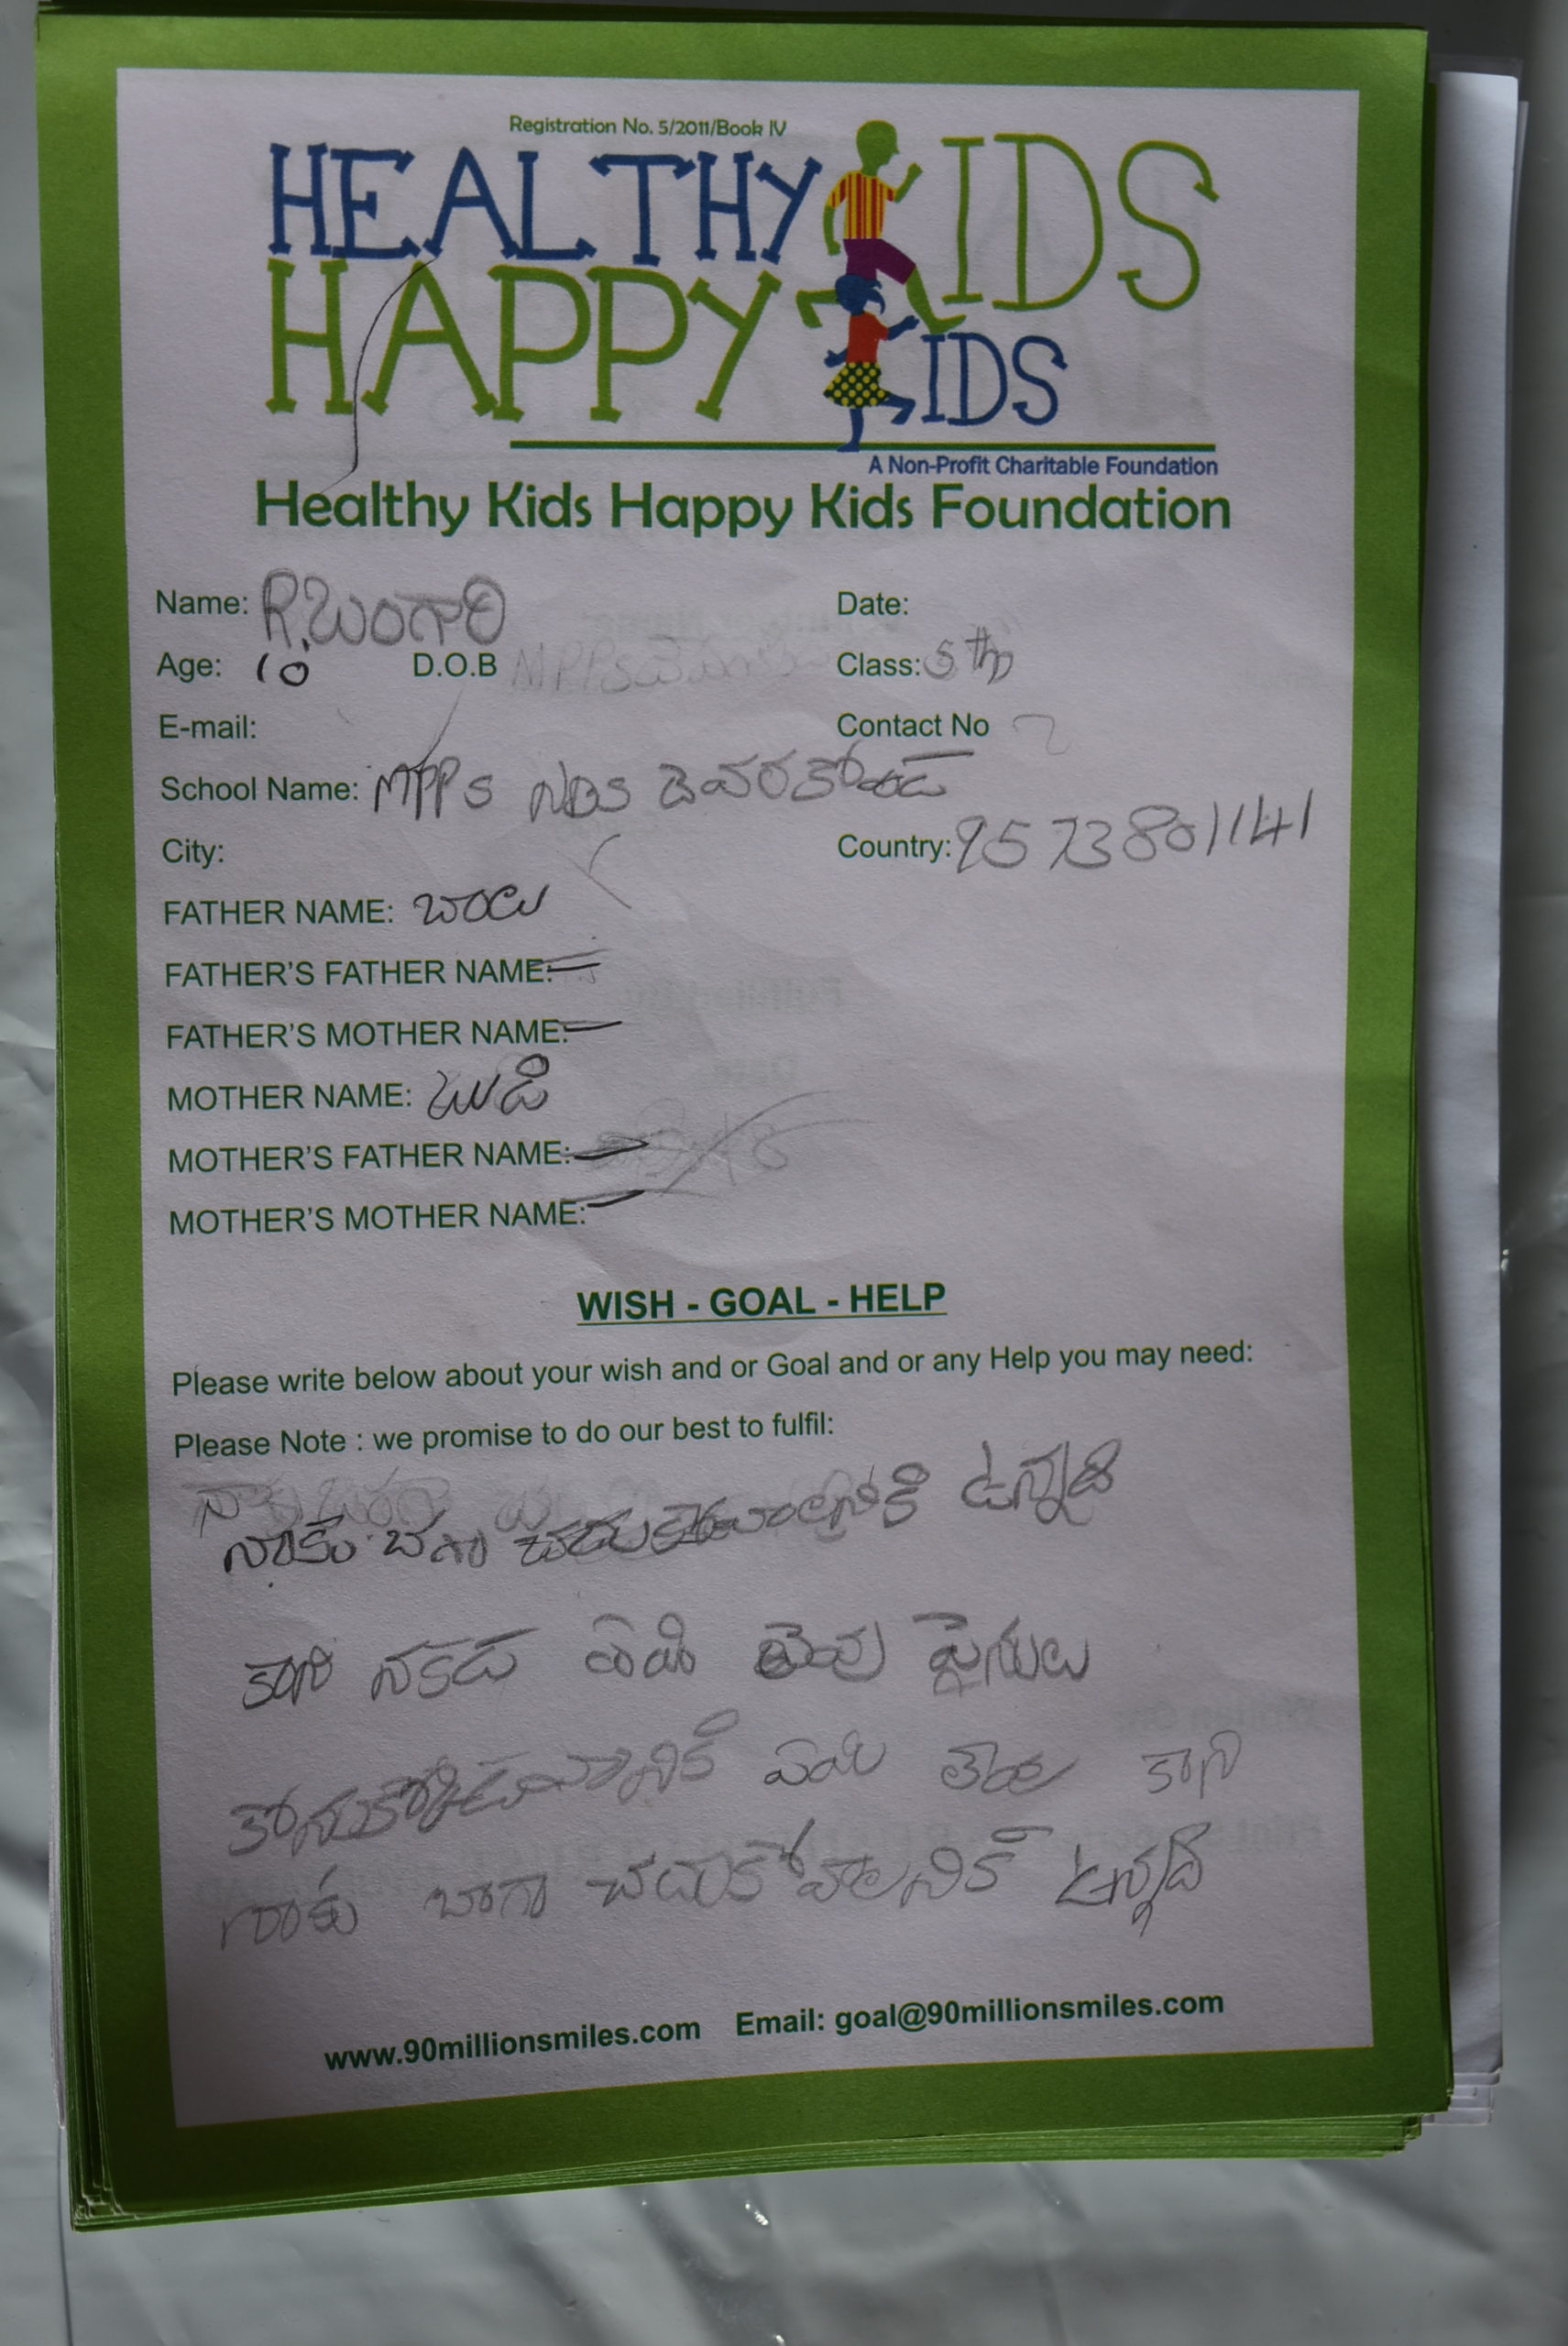 Registration No. 5/2011/Book IV
HEALTHY KIDS
HAPPY KIDS
A Non-Profit Charitable Foundation
Healthy Kids Happy Kids Foundation
Name: R.బంగారి
Date:
Age: 10 D.O.B
Class: 5th
E-mail:
Contact No
School Name: MPPS NDS
City:
Country: 9573801141
FATHER NAME:
FATHER'S FATHER NAME: -
FATHER'S MOTHER NAME: -
MOTHER NAME:
MOTHER'S FATHER NAME: -
MOTHER'S MOTHER NAME: -
WISH - GOAL - HELP
Please write below about your wish and or Goal and or any Help you may need:
Please Note : we promise to do our best to fulfil:
నాకు బగా ఉన్నది
కాని
కాని
నాకు బాగా చదుకోవాలనికి ఉన్నది
www.90millionsmiles.com Email: goal@90millionsmiles.com